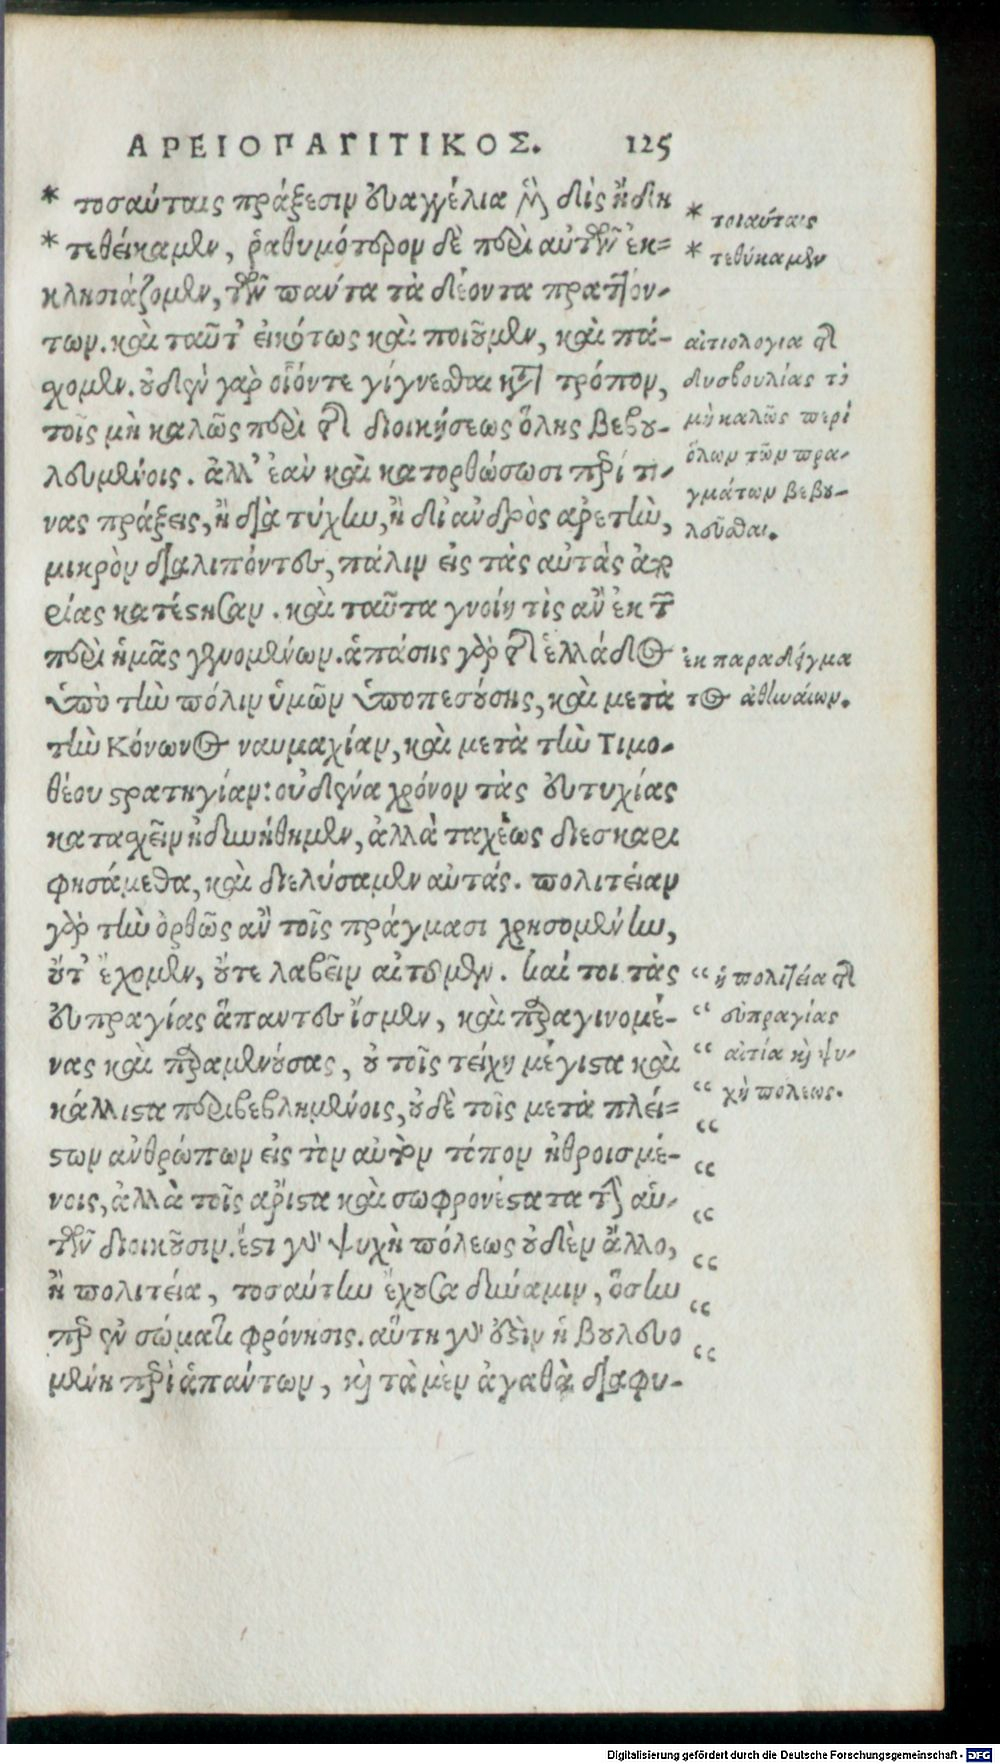 ΑΡΕΙΟΠΑΓΙΤΙΚΟΣ. 125
* τοσαύταις πράξεσιν εὐαγγέλια μὲν δὶς ἤδη
* τεθείκαμεν, ῥαθυμότερον δὲ περὶ αὐτῶν ἐκ=
κλησιάζομεν, τῶν πάντα τὰ δέοντα πραττόν-
των. καὶ ταῦτ᾽ εἰκότως καὶ ποιοῦμεν, καὶ πά-
σχομεν. οὐδὲν γὰρ οἷόντε γίγνεσθαι κατὰ τρόπον,
τοῖς μὴ καλῶς περὶ τῆς διοικήσεως ὅλης βεβου-
λευμένοις. ἀλλ᾽ ἐὰν καὶ κατορθώσωσι περί τι-
νας πράξεις, ἢ διὰ τύχην, ἢ δι᾽ ἀνδρὸς ἀρετὴν,
μικρὸν διαλιπόντες, πάλιν εἰς τὰς αὐτὰς ἀπο
ρίας κατέστησαν. καὶ ταῦτα γνοίη τὶς ἂν ἐκ τῶν
περὶ ἡμᾶς γενομένων. ἁπάσης γὰρ τῆς ἑλλάδος
ὑπὸ τὴν πόλιν ὑμῶν ὑποπεσούσης, καὶ μετὰ
τὴν Κόνωνος ναυμαχίαν, καὶ μετὰ τὴν Τιμο-
θέου στρατηγίαν: οὐδένα χρόνον τὰς εὐτυχίας
κατασχεῖν ἠδυνήθημεν, ἀλλὰ ταχέως διεσκαρι
φησάμεθα, καὶ διελύσαμεν αὐτάς. πολιτείαν
γὰρ τὴν ὀρθῶς ἂν τοῖς πράγμασι χρησομένην,
οὔτ᾽ ἔχομεν, οὔτε λαβεῖν αἰτοῦμεν. καί τοι τὰς
εὐπραγίας ἅπαντες ἴσμεν, καὶ παραγινομέ-
νας καὶ παραμενούσας, οὐ τοῖς τείχη μέγιστα καὶ
κάλλιστα περιβεβλημένοις, οὐδὲ τοῖς μετὰ πλεί=
στων ἀνθρώπων εἰς τὸν αὐτὸν τόπον ἠθροισμέ-
νοις, ἀλλὰ τοῖς ἄριστα καὶ σωφρονέστατα τὴν αὑ-
τῶν διοικοῦσιν. ἔστι γὰρ ψυχὴ πόλεως οὐδὲν ἄλλο,
ἢ πολιτεία, τοσαύτην ἔχουσα δύναμιν, ὅσην
περ ἐν σώματι φρόνησις. αὕτη γάρ ἐστὶν ἡ βουλευο
μένη περὶ ἁπάντων, καὶ τὰ μὲν ἀγαθὰ διαφυ-
* τοιαύταις
* τεθύκαμεν
αἰτιολογία τῆς
δυσβουλίας τὸ
μὴ καλῶς περὶ
ὅλων τῶν πρα-
γμάτων βεβου-
λεῦσθαι.
ἐκ παραδείγμα
τος ἀθηναίων.
“ ἡ πολιτεία τῆς
“ εὐπραγίας
“ αἰτία καὶ ψυ-
“ χὴ πόλεως.
“
“
“
“
“
“
Digitalisierung gefördert durch die Deutsche Forschungsgemeinschaft - DFG